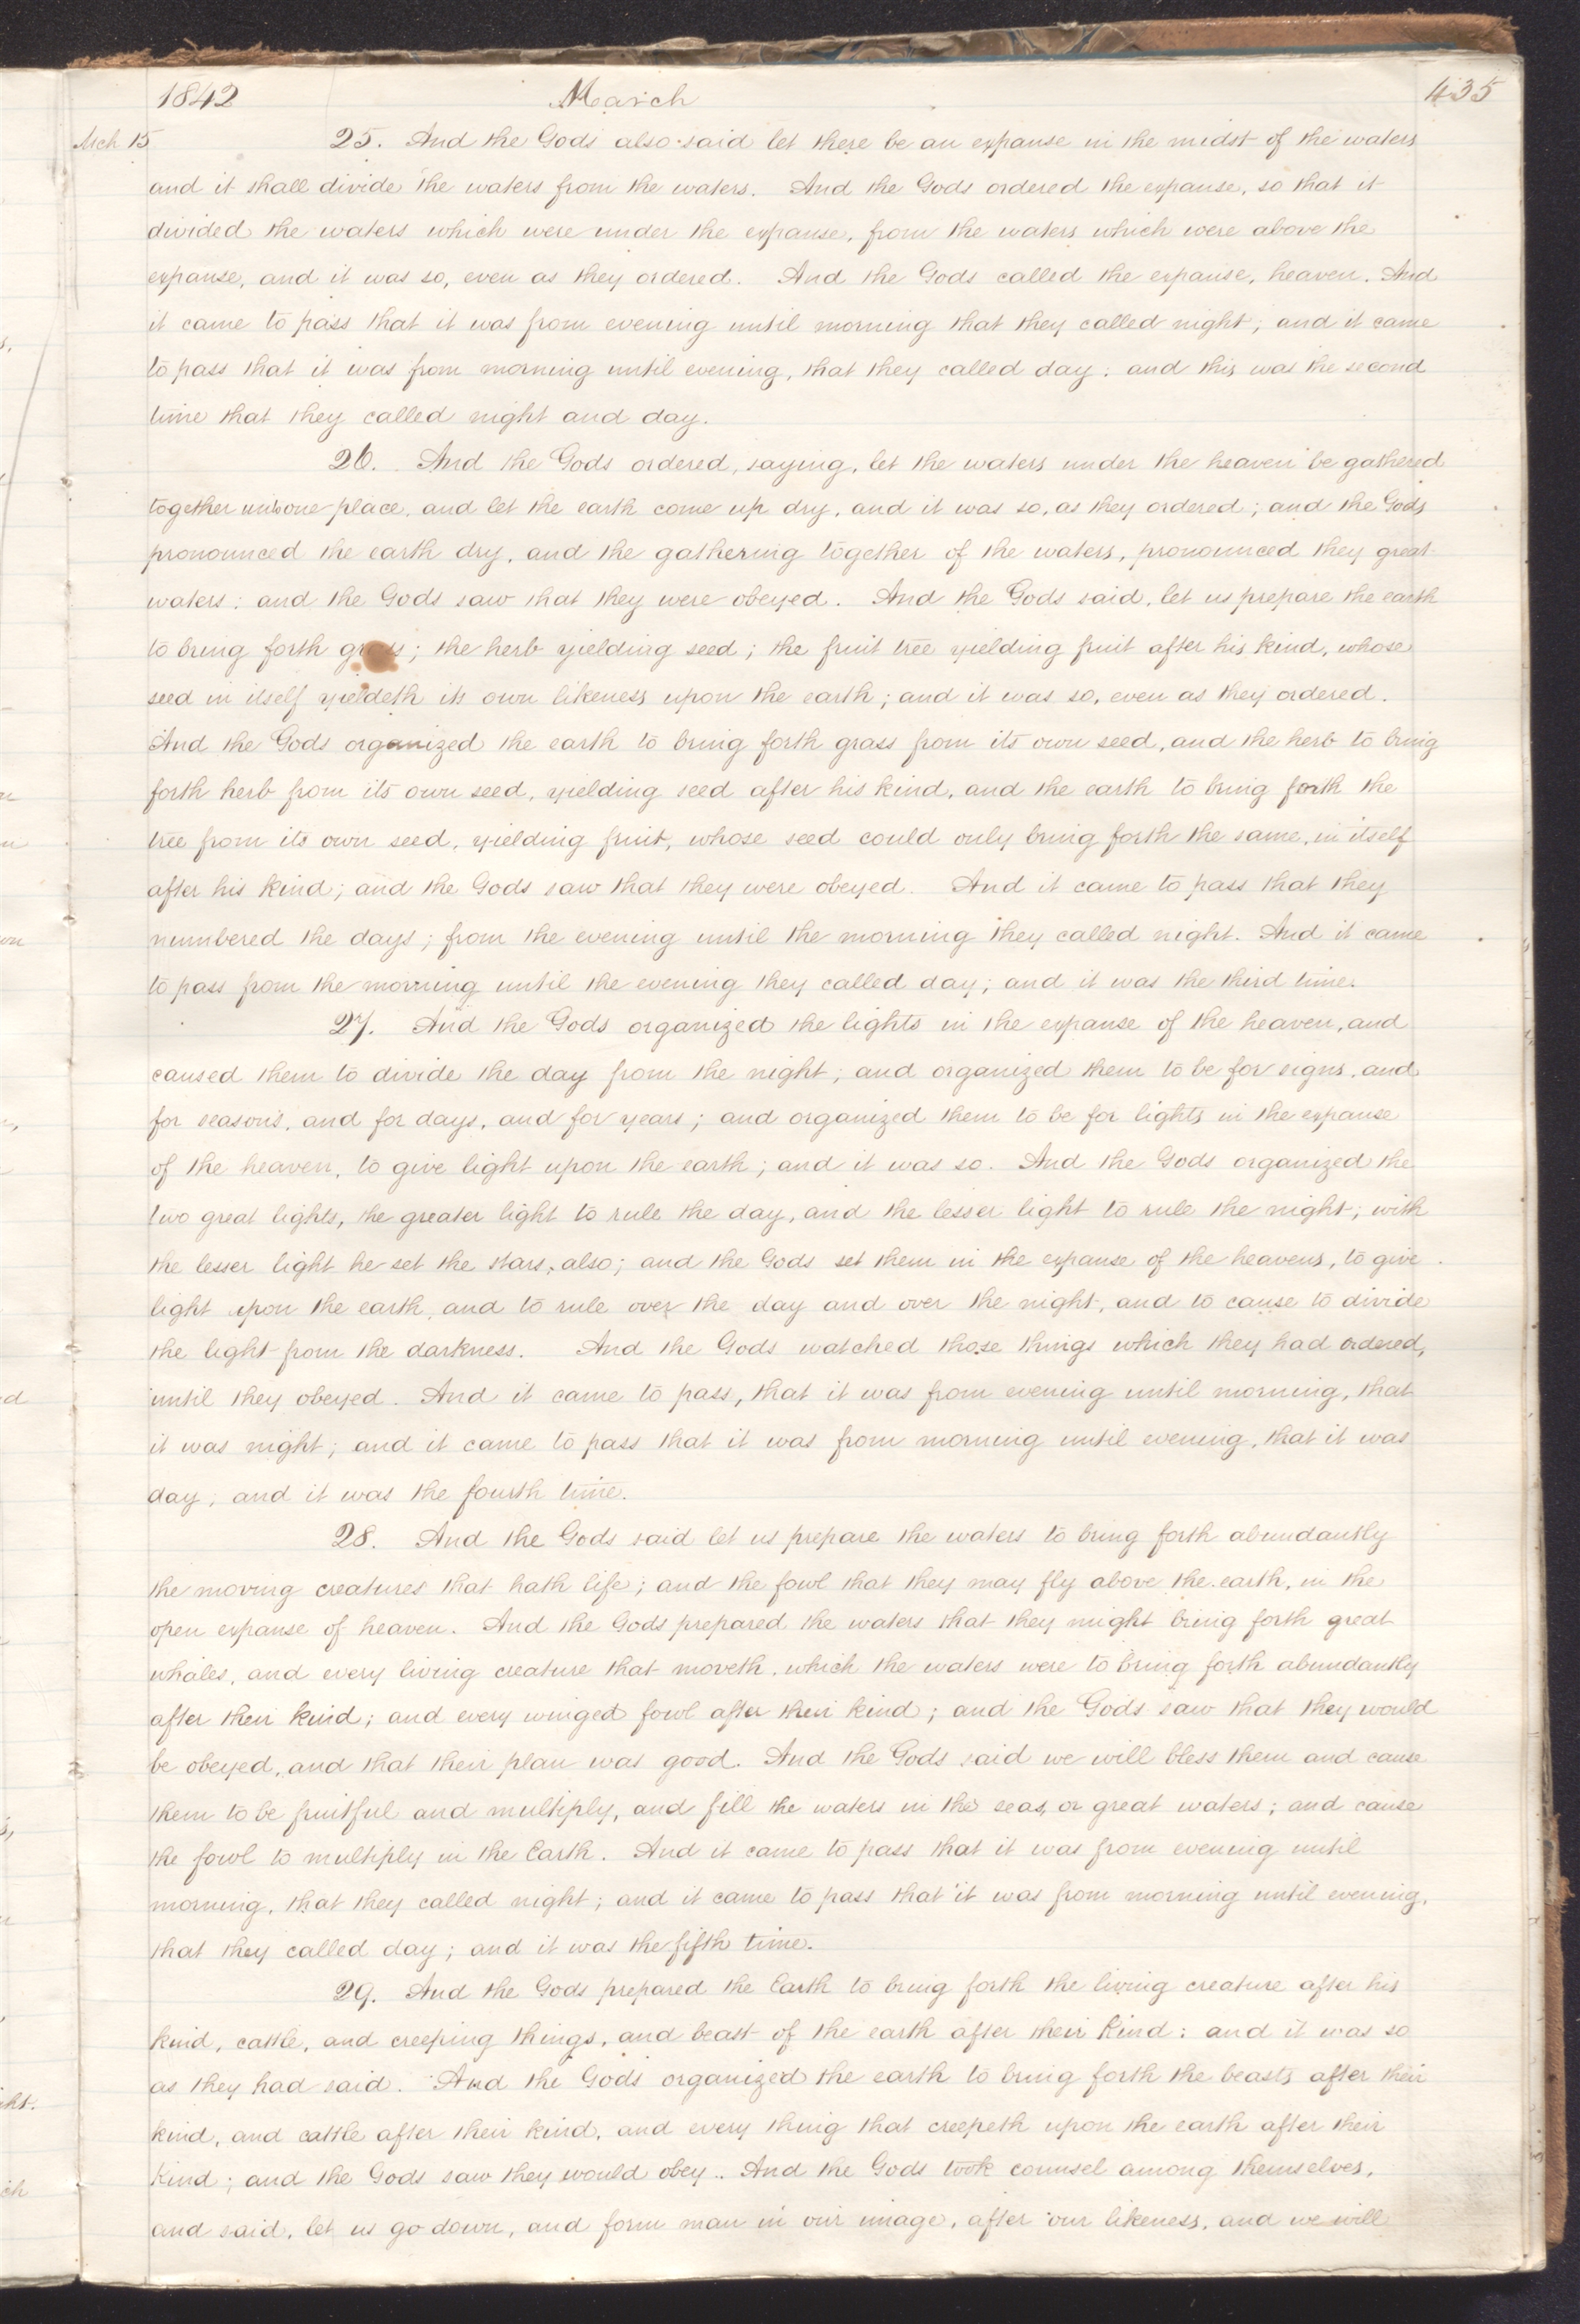 1842 March 435
Mch 15 25. And the Gods also said let there be an expanse in the midst of the waters
and it shall divide the waters from the waters. And the Gods ordered the expanse, so that it
divided the waters which were under the expanse, from the waters which were above the
expanse, and it was so, even as they ordered. And the Gods called the expanse, heaven. And
it came to pass that it was from evening until morning that they called night; and it came
to pass that it was from morning until evening, that they called day: and this was the second
time that they called night and day.
26. And the Gods ordered, saying, let the waters under the heaven be gathered
together unto one place, and let the earth come up dry, and it was so, as they ordered; and the Gods
pronounced the earth dry, and the gathering together of the waters, pronounced they great
waters: and the Gods saw that they were obeyed. And the Gods said, let us prepare the earth
to bring forth grass; the herb yielding seed; the fruit tree yielding fruit after his kind, whose
seed in itself yieldeth its own likeness upon the earth; and it was so, even as they ordered.
And the Gods organized the earth to bring forth grass from its own seed, and the herb to bring
forth herb from its own seed, yielding seed after his kind, and the earth to bring forth the
tree from its own seed, yielding fruit, whose seed could only bring forth the same, in itself
after his kind; and the Gods saw that they were obeyed. And it came to pass that they
numbered the days; from the evening until the morning they called night. And it came
to pass from the morning until the evening they called day; and it was the third time.
27. And the Gods organized the lights in the expanse of the heaven, and
caused them to divide the day from the night; and organized them to be for signs, and
for seasons, and for days, and for years; and organized them to be for lights in the expanse
of the heaven, to give light upon the earth; and it was so. And the Gods organized the
two great lights, the greater light to rule the day, and the lesser light to rule the night; with
the lesser light he set the stars, also; and the Gods set them in the expanse of the heavens, to give
light upon the earth, and to rule over the day and over the night, and to cause to divide
the light from the darkness. And the Gods watched those things which they had ordered,
until they obeyed. And it came to pass, that it was from evening until morning, that
it was night; and it came to pass that it was from morning until evening, that it was
day; and it was the fourth time.
28. And the Gods said let us prepare the waters to bring forth abundantly
the moving creatures that hath life; and the fowl that they may fly above the earth, in the
open expanse of heaven. And the Gods prepared the waters that they might bring forth great
whales, and every living creature that moveth, which the waters were to bring forth abundantly
after their kind; and every winged fowl after their kind; and the Gods saw that they would
be obeyed, and that their plan was good. And the Gods said we will bless them and cause
them to be fruitful and multiply, and fill the waters in the seas, or great waters; and cause
the fowl to multiply in the Earth. And it came to pass that it was from evening until
morning, that they called night; and it came to pass that it was from morning until evening,
that they called day; and it was the fifth time.
29. And the Gods prepared the Earth to bring forth the living creature after his
kind, cattle, and creeping things, and beast of the earth after their kind: and it was so
as they had said. And the Gods organized the earth to bring forth the beasts after their
kind, and cattle after their kind, and every thing that creepeth upon the earth after their
kind; and the Gods saw they would obey. And the Gods took counsel among themselves,
and said, let us go down, and form man in our image, after our likeness, and we will